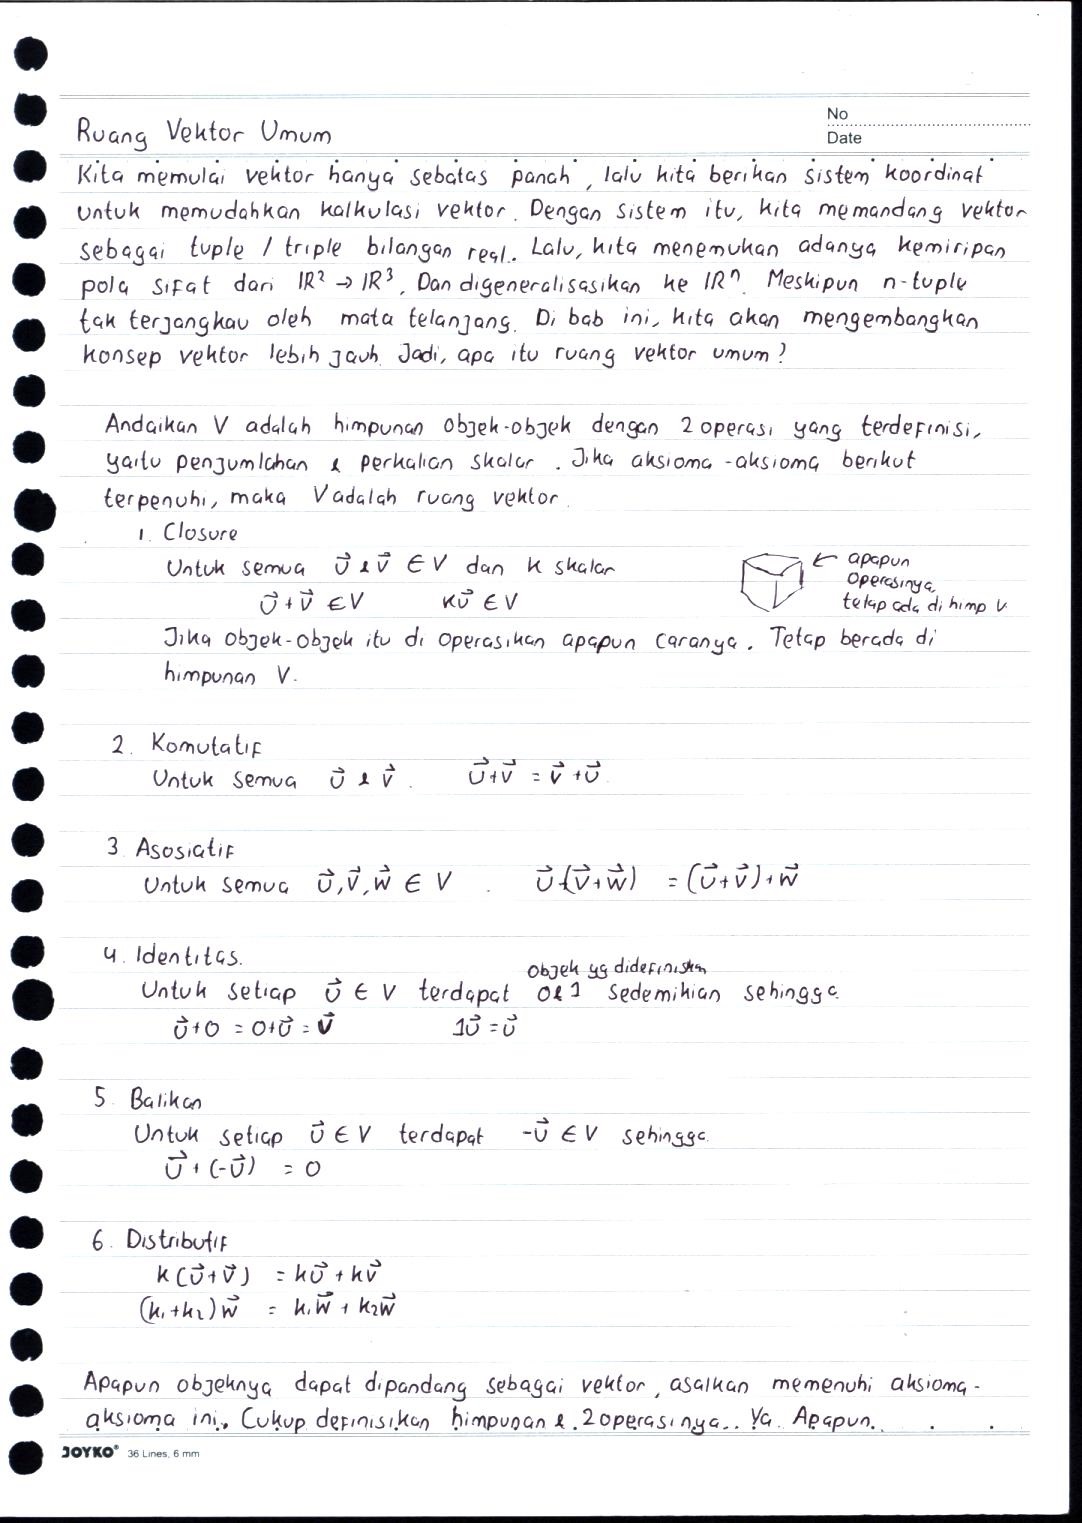 No
Date
Ruang Vektor Umum
Kita memulai vektor hanya sebatas panah, lalu kita berikan sistem koordinat
untuk memudahkan kalkulasi vektor. Dengan sistem itu, kita memandang vektor
sebagai tuple / triple bilangan real. Lalu, kita menemukan adanya kemiripan
pola sifat dari IR² → IR³. Dan digeneralisasikan ke IRⁿ. Meskipun n-tuple
tak terjangkau oleh mata telanjang. Di bab ini, kita akan mengembangkan
konsep vektor lebih jauh. Jadi, apa itu ruang vektor umum?
Andaikan V adalah himpunan objek-objek dengan 2 operasi yang terdefinisi,
yaitu penjumlahan & perkalian skalar. Jika aksioma-aksioma berikut
terpenuhi, maka V adalah ruang vektor.
1. Closure
Untuk semua u⃗ & v⃗ ∈ V dan k skalar
u⃗ + v⃗ ∈ V   ku⃗ ∈ V
← apapun
operasinya,
tetap ada di himp V.
Jika objek-objek itu di operasikan apapun caranya. Tetap berada di
himpunan V.
2. Komutatif
Untuk semua u⃗ & v⃗.   u⃗+v⃗ = v⃗+u⃗.
3. Asosiatif
Untuk semua u⃗, v⃗, w⃗ ∈ V.   u⃗+(v⃗+w⃗) = (u⃗+v⃗)+w⃗
4. Identitas.
objek yg didefiniskan
Untuk setiap u⃗ ∈ V terdapat 0 & 1 sedemikian sehingga
u⃗+0 = 0+u⃗ = v⃗   1u⃗ = u⃗
5. Balikan
Untuk setiap u⃗ ∈ V terdapat -u⃗ ∈ V sehingga
u⃗ + (-u⃗) = 0
6. Distributif
k(u⃗+v⃗) = ku⃗ + kv⃗
(k₁+k₂)w⃗ = k₁w⃗ + k₂w⃗
Apapun objeknya dapat dipandang sebagai vektor, asalkan memenuhi aksioma-
aksioma ini. Cukup definisikan himpunan & 2 operasinya.. Ya. Apapun.
JOYKO® 36 Lines, 6 mm